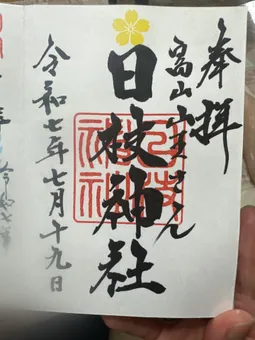 奉拝
高山山王さん
日枝神社
日枝神社
令和七年七月十九日